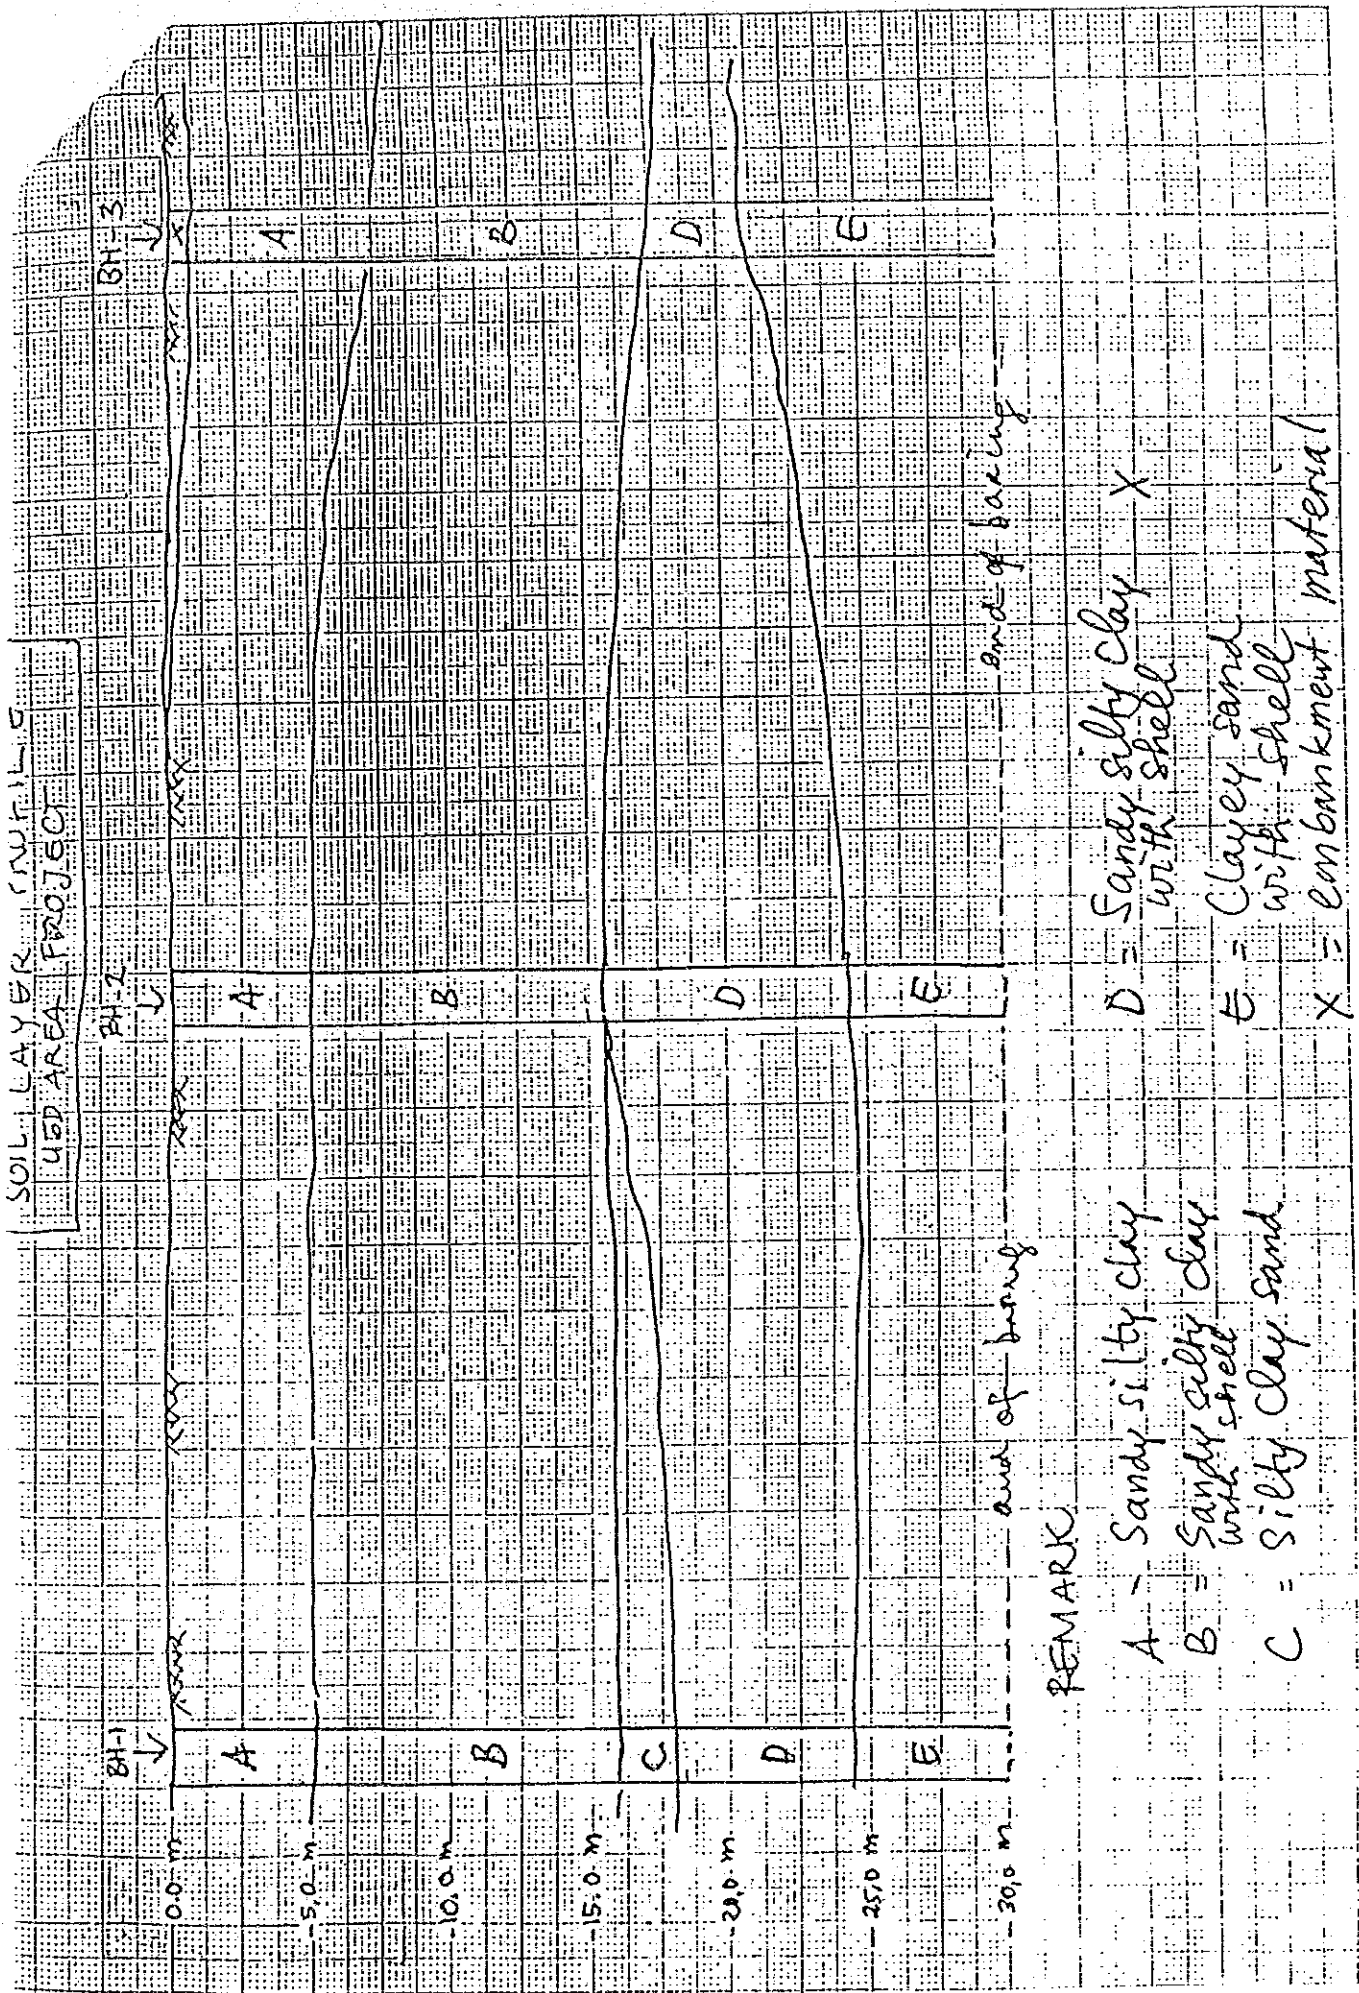 SOIL LAYER
USD AREA PROJECT
BH-1 BH-2 BH-3
0.0 m
X
A A A
-5,0 m
-10,0 m
B B B
-15.0 m
C
D D D
-20,0 m
-25,0 m
E E E
-30,0 m
end of boring
end of boring
REMARK
A - Sandy silty clay
B = Sandy silty clay
with shell
C = Silty clay sand
D = Sandy silty clay X
with shell
E = Clayey sand
with shell
X = embankment material